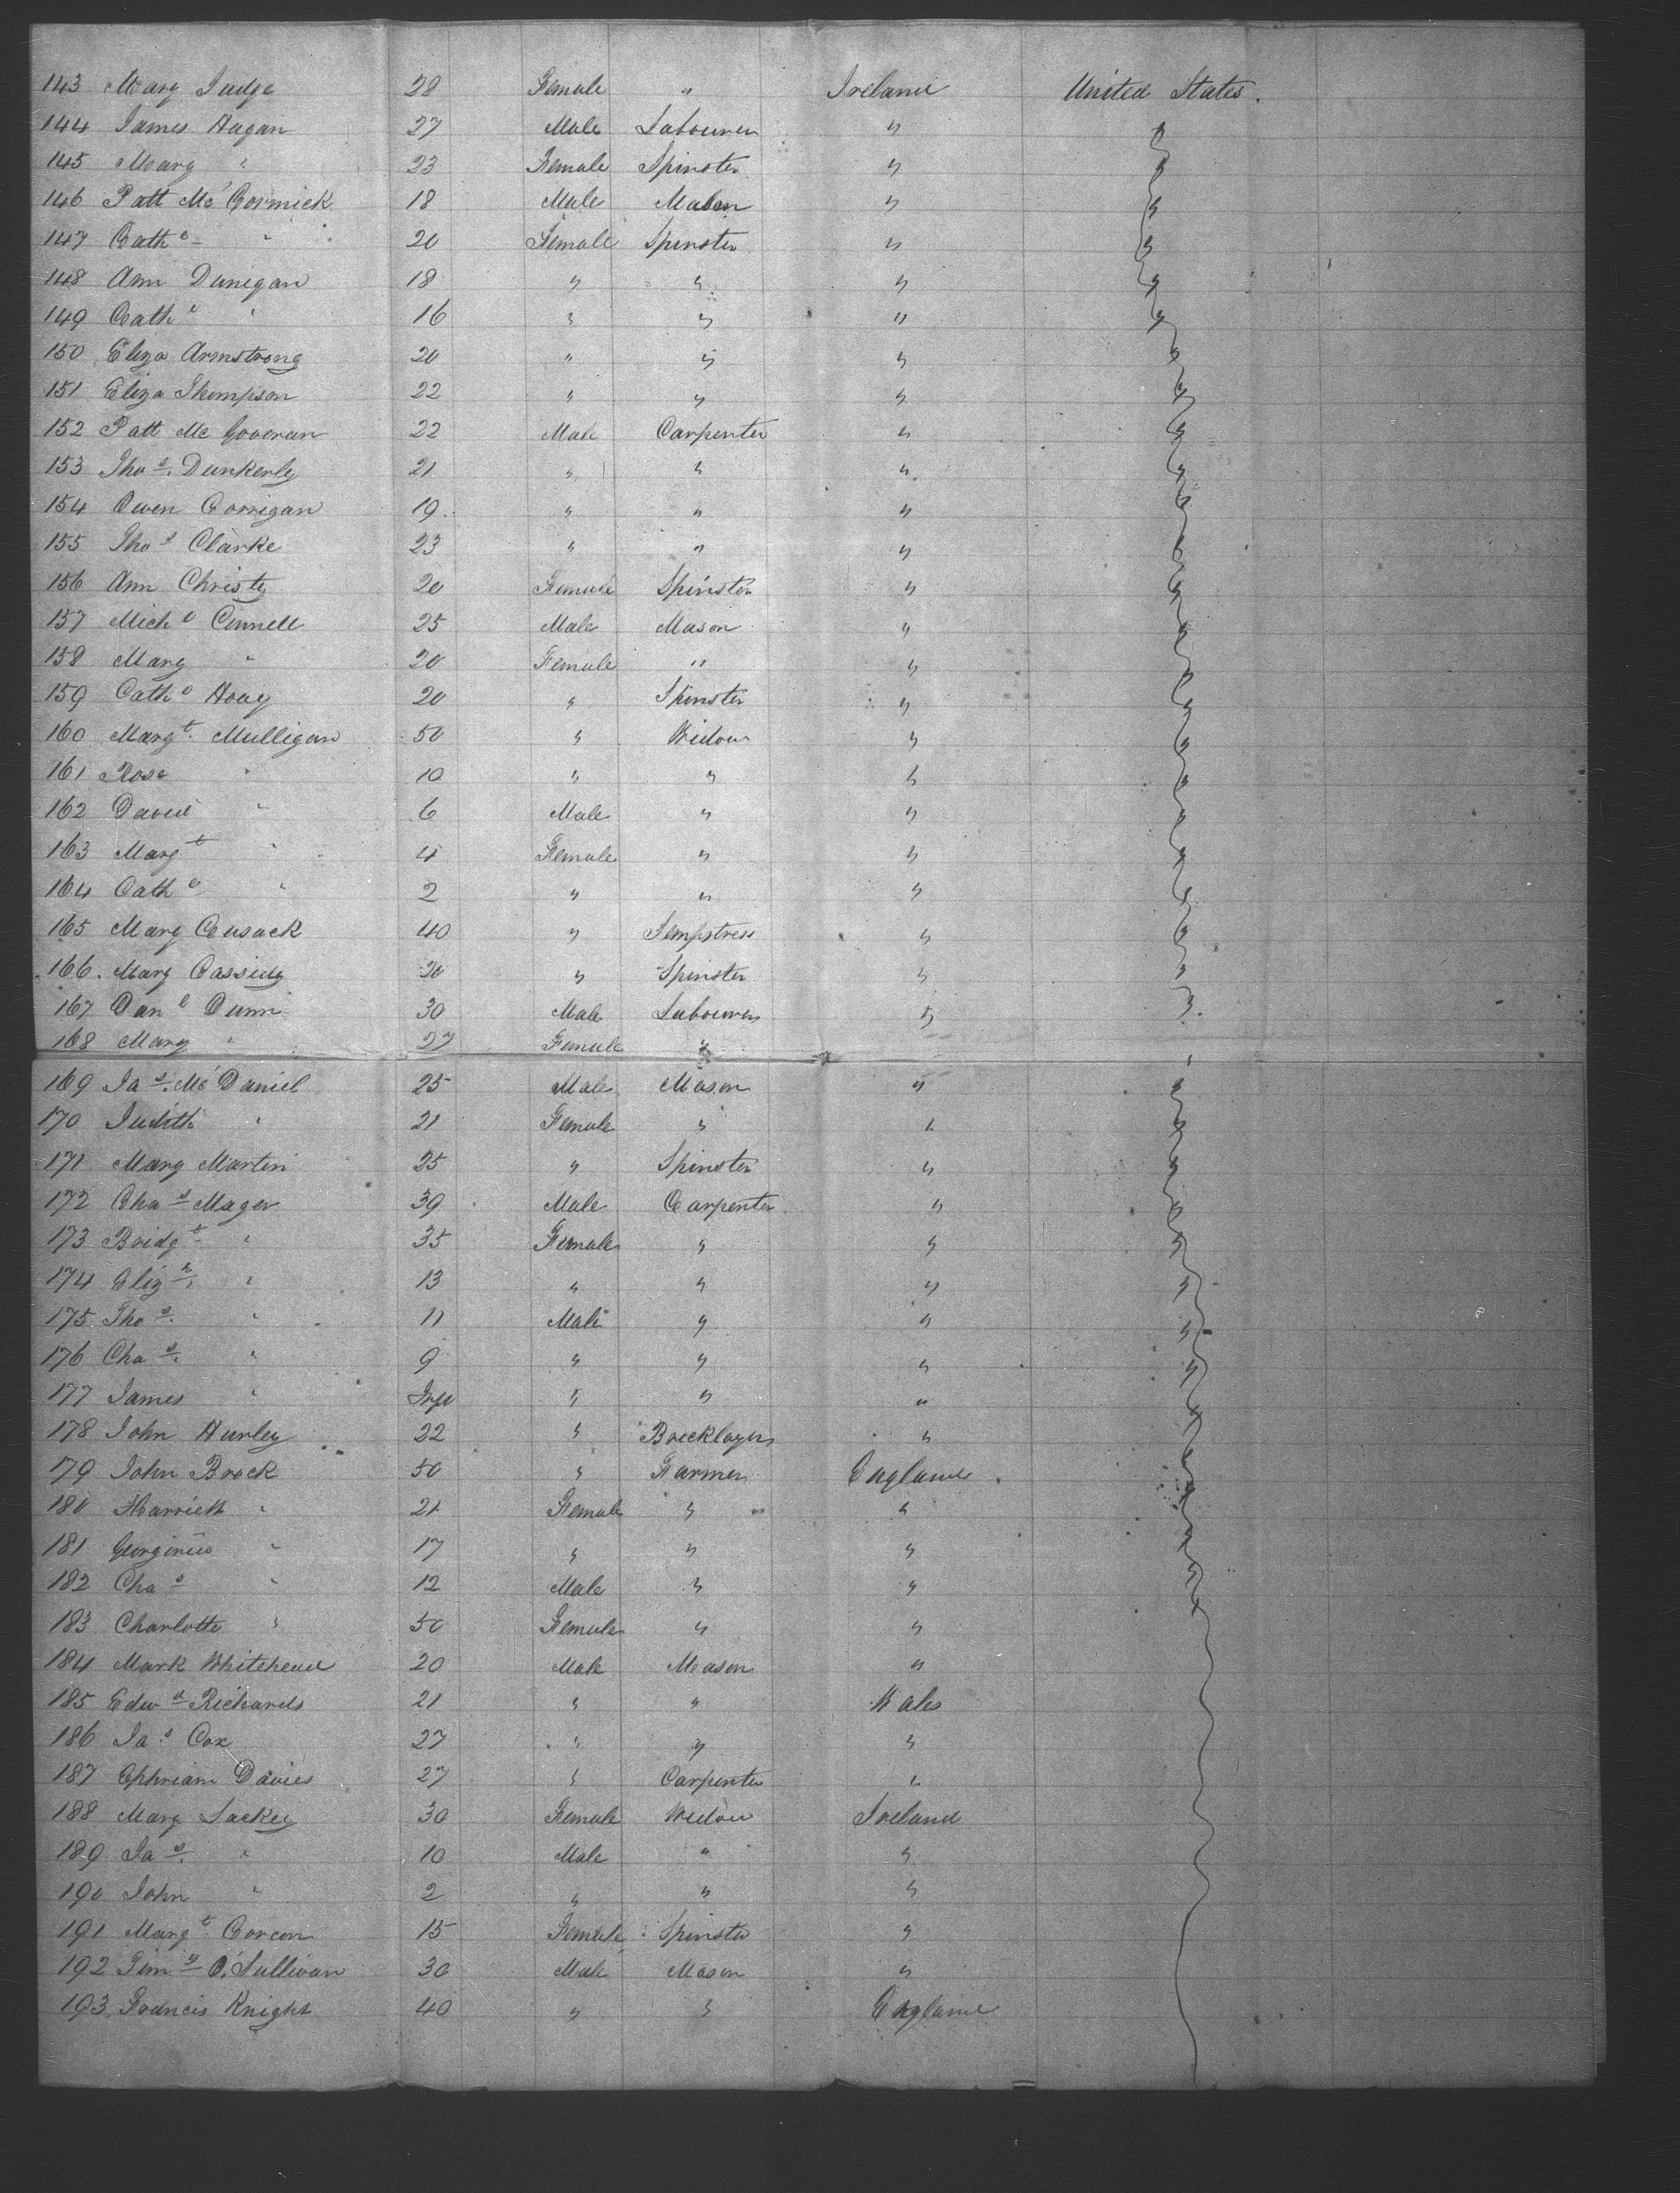 143 Mary Judge 28 Female " Ireland United States.
144 James Hagan 27 Male Labourer " "
145 Mary " 23 Female Spinster " "
146 Patt Mc Cormick 18 Male Mason " "
147 Cathe " 20 Female Spinster " "
148 Ann Dunegan 18 " " " "
149 Cathe " 16 " " " "
150 Eliza Armstrong 20 " " " "
151 Eliza Thompson 22 " " " "
152 Patt Mc Goveran 22 Male Carpenter " "
153 Thos. Dunkerly 21 " " " "
154 Owen Corrigan 19 " " " "
155 Thos Clarke 23 " " " "
156 Ann Christy 20 Female Spinster " "
157 Michl Connell 25 Male Mason " "
158 Mary " 20 Female " " "
159 Cathe Hoay 20 " Spinster " "
160 Margt. Mulligan 50 " Widow " "
161 Rose " 10 " " " "
162 David " 6 Male " " "
163 Margt " 4 Female " " "
164 Cathe " 2 " " " "
165 Mary Cusack 40 " Sempstress " "
166. Mary Cassidy 20 " Spinster " "
167 Danl Dunn 30 Male Labourer " "
168 Mary " 27 Female " " "
169 Jas. Mc Daniel 25 Male Mason " "
170 Judith " 21 Female " " "
171 Mary Martin 25 " Spinster " "
172 Chas Mager 39 Male Carpenter " "
173 Bridgt " 35 Female " " "
174 Elizh. " 13 " " " "
175 Thos. " 11 Male " " "
176 Chas. " 9 " " " "
177 James " Inft " " " "
178 John Hurley 22 " Bricklayer " "
179 John Brock 50 " Farmer England "
180 Harriett " 21 Female " " "
181 " 17 " " " "
182 Chas " 12 Male " " "
183 Charlotte " 50 Female " "
184 Mark Whitehead 20 Male Mason "
185 Edwd Richards 21 " " Wales
186 Jas Cox 27 " " "
187 Ephriam Davies 27 " Carpenter "
188 Mary Lackey 30 Female Widow Ireland
189 Jas. " 10 Male " "
190 John " 2 " " "
191 Margt Corcon 15 Female Spinster "
192 Timy O'Sullivan 30 Male Mason "
193 Francis Knight 40 " " England